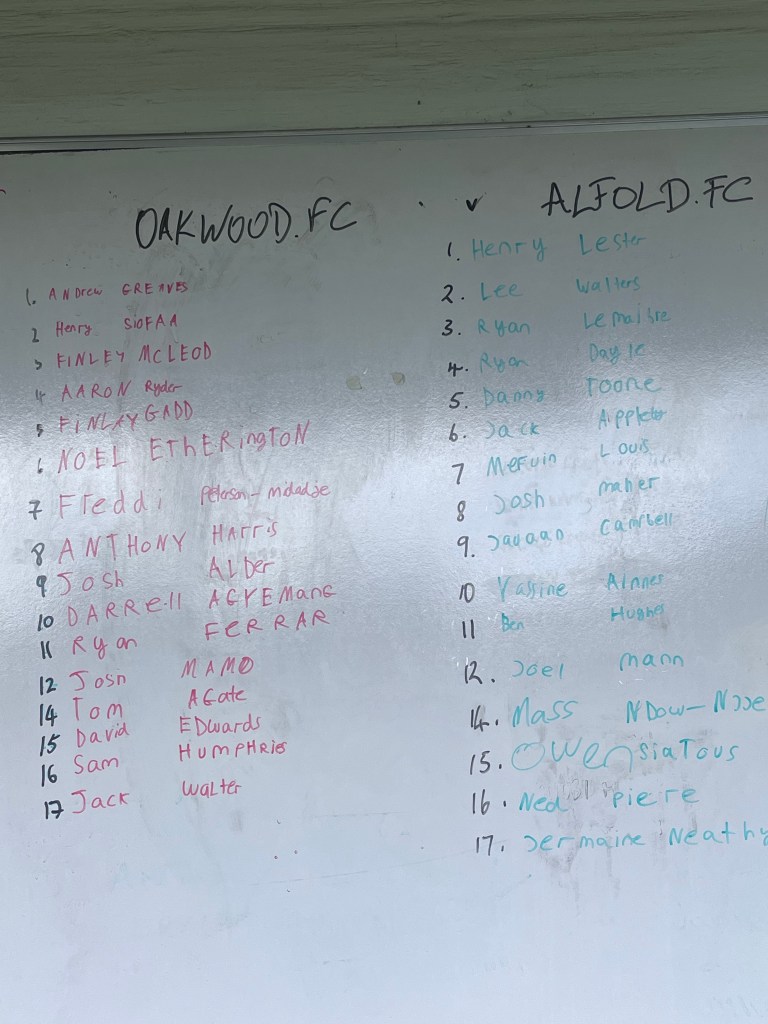 OAKWOOD.FC
1. ANDrew GREAVES
2 Henry SioFAA
3 FINLEY MCLEOD
4 AARON Ryder
5 FINLAY GADD
6 NOEL EtHERingToN
7 Freddi Peterson-midadje
8 ANTHONY HArris
9 Josh ALDer
10 DARRell AGYEMANG
11 Ryan FERRAR
12 Josh MAMO
14 Tom AGate
15 David EDwards
16 Sam HUMPHRies
17 Jack WaLter
v ALFOLD.FC
1. Henry Lester
2. Lee Walters
3. Ryan Lemaitre
4. Ryan Dayle
5. Danny Toone
6. Jack Appleton
7 Mervin Louis
8 Josh maher
9. Javaan Campbell
10 Yassine Ainner
11 Ben Hughes
12. Joel mann
14. Mass NDow-NJie
15. Owen SiaTous
16. Ned pierre
17. Jermaine Neathy